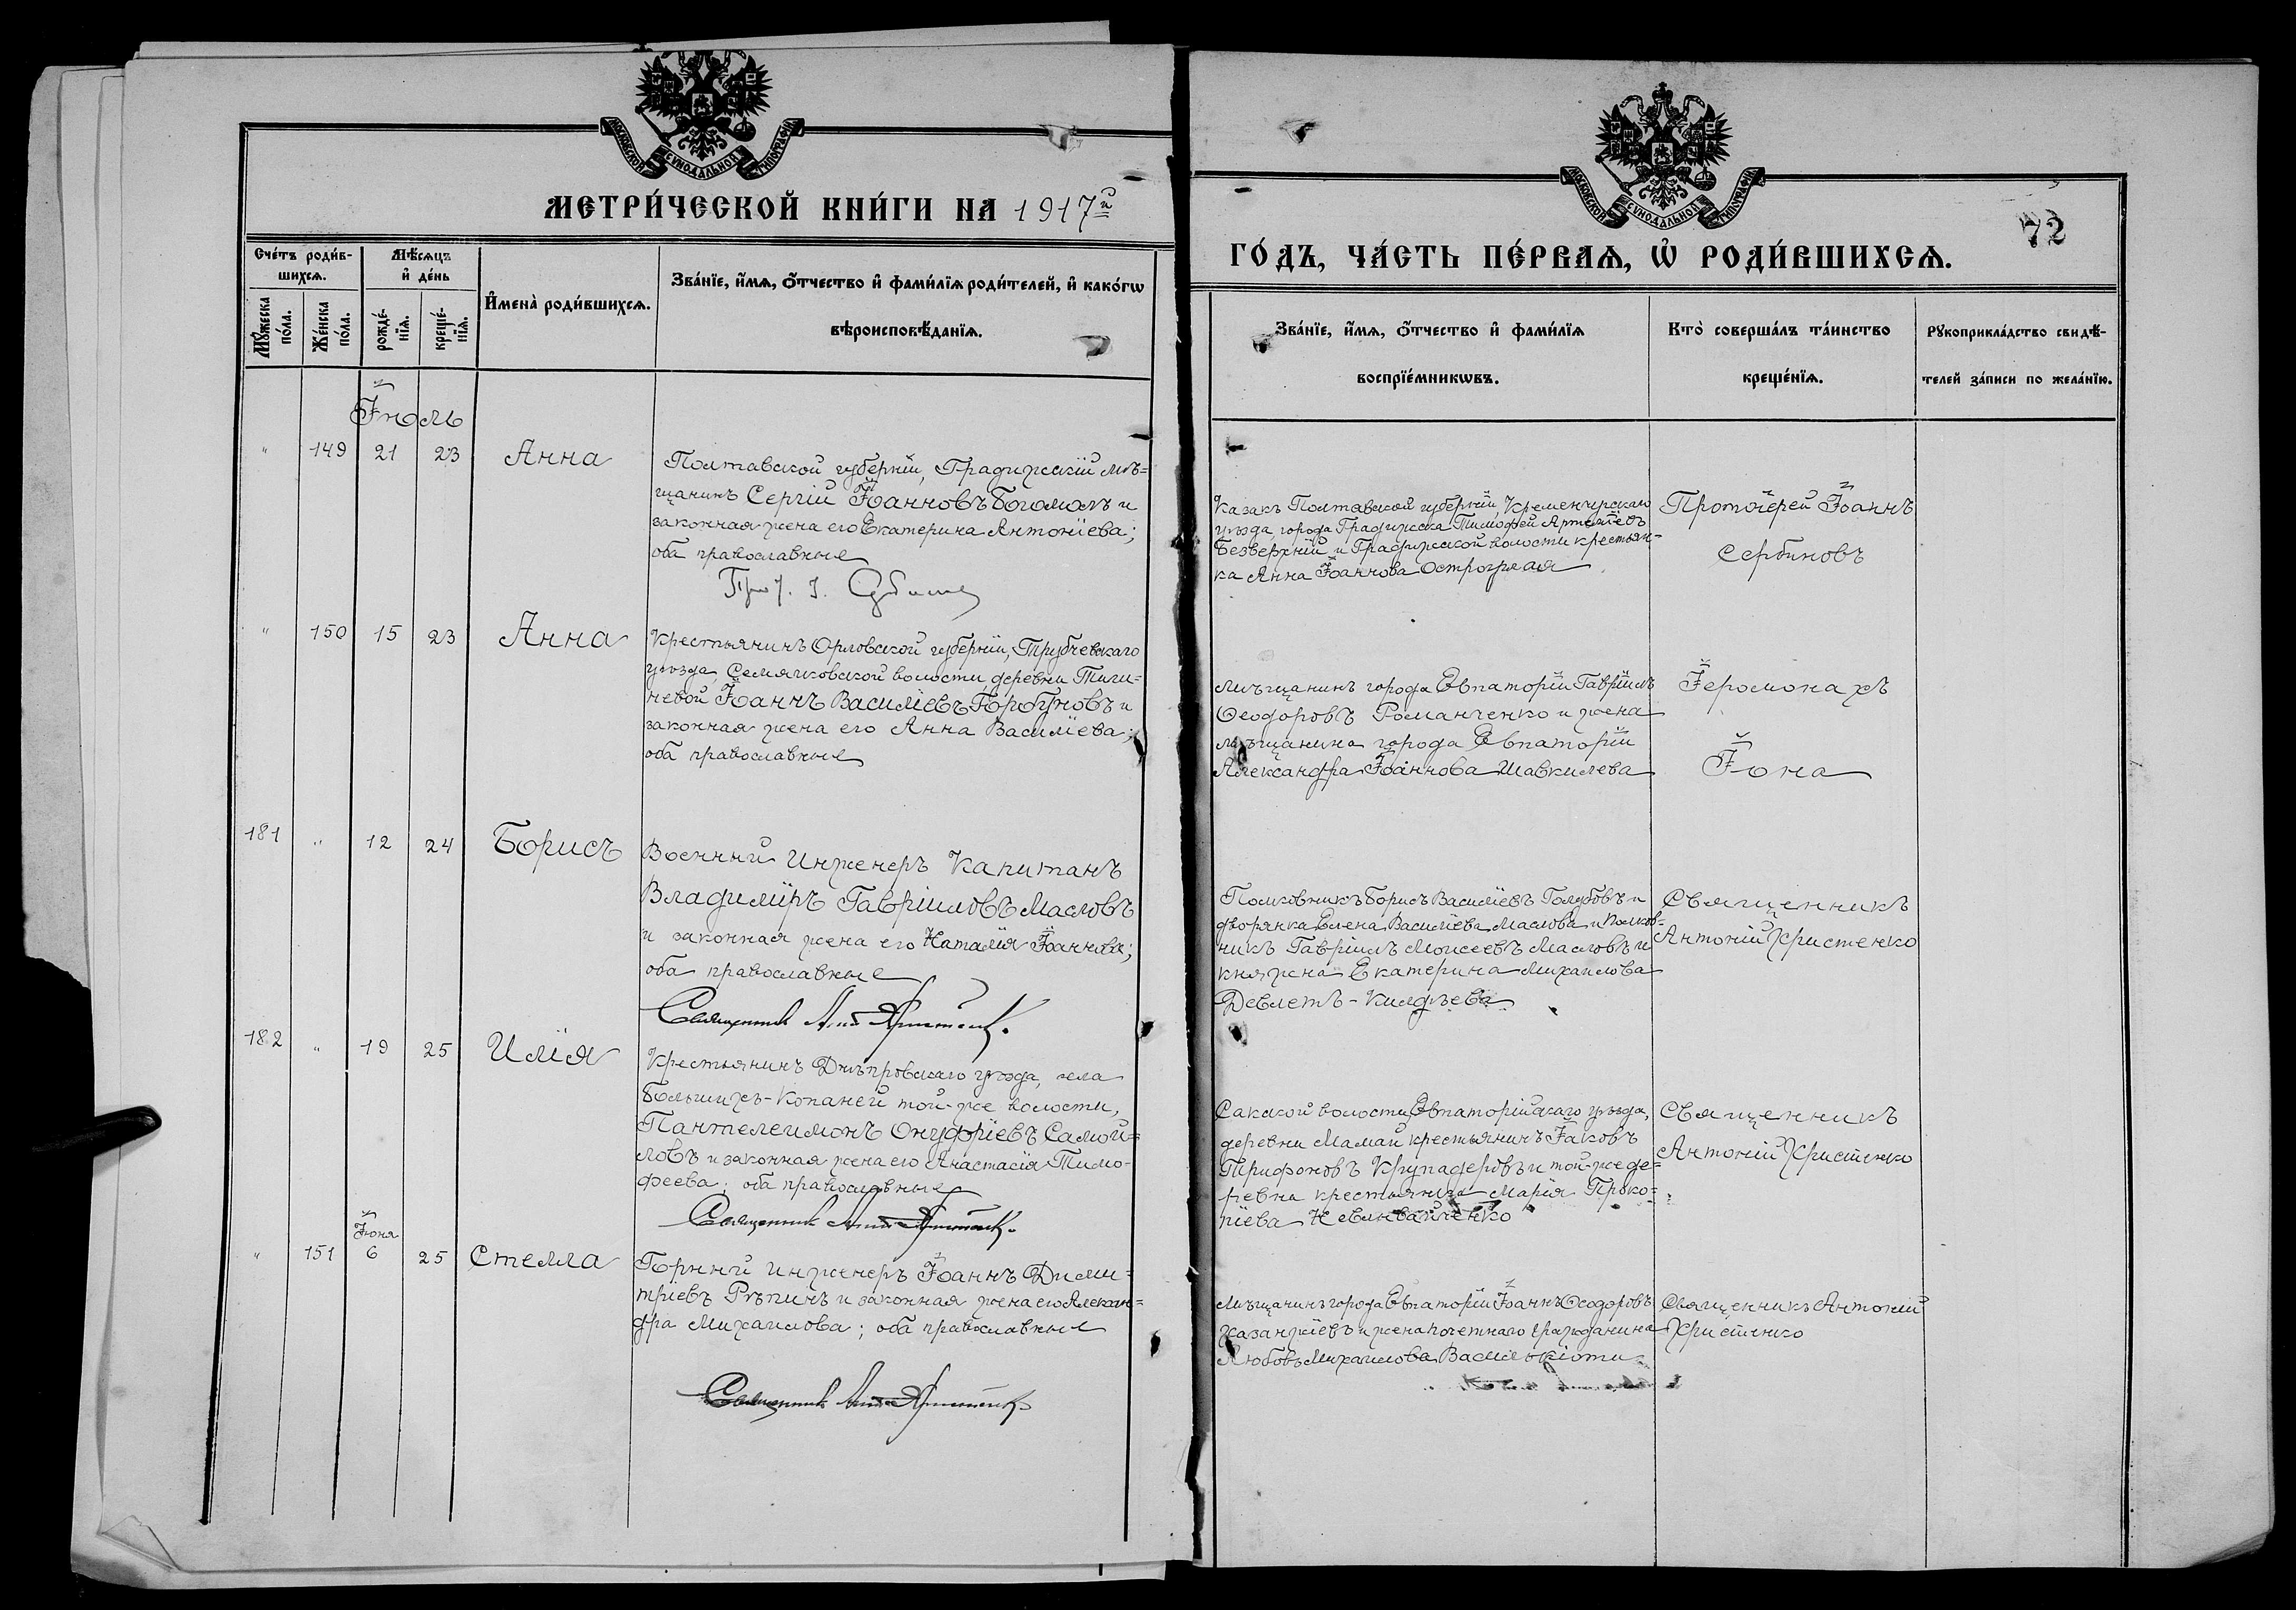 МОСКОВСКОЙ СѴНОДАЛЬНОЙ ТИПОГРАФІИ
МЕТРИ́ЧЕСКОЙ КНИ́ГИ НА 1917й
Сче́тъ роди́в-
шихсѧ.
Мꙋ́жеска по́ла.
Же́нска по́ла.
Мѣ́сѧцъ
и҆ де́нь
рожде́-
нїѧ.
креще́-
нїѧ.
И҆мена̀ роди́вшихсѧ.
Зва́нїе, и҆́мѧ, ѻ҆́тчество и҆ фами́лїѧ роди́телей, и҆ како́гѡ
вѣроисповѣ́данїѧ.
Іюль
" 149 21 23 Анна
Полтавской губерніи, Градижскій мѣ=
щанинъ Сергій Іоанновъ Богомолъ и
законная жена его Екатерина Антоніева;
оба православные
Прот. І. Сербинов
" 150 15 23 Анна
Крестьянинъ Орловской губерніи, Трубчевскаго
уѣзда, Семячковской волости деревни Тиги-
невой Іоаннъ Василіевъ Горбуновъ и
законная жена его Анна Василіева;
оба православные
181 " 12 24 Борисъ
Военный Инженеръ Капитанъ
Владиміръ Гавріиловъ Масловъ
и законная жена его Наталія Іоаннова;
оба православные
Священник Ант Христенко.
182 " 19 25 Илія
Крестьянинъ Днѣпровскаго уѣзда, села
Большихъ-Копаней той-же волости,
Пантелеимонъ Онуфріевъ Самой=
ловъ и законная жена его Анастасія Тимо-
феева; оба православные
Священник Ант Христенко.
Іюня
" 151 6 25 Стелла
Горный инженеръ Іоаннъ Дими=
тріевъ Рѣпинъ и законная жена его Алексан=
дра Михаилова; оба православные
Священник Ант Христенко
МОСКОВСКОЙ СѴНОДАЛЬНОЙ ТИПОГРАФІИ
72
ГО́ДЪ, ЧА́СТЬ ПЕ́РВАѦ, Ѡ҆ РОДИ́ВШИХСѦ.
Зва́нїе, и҆́мѧ, ѻ҆́тчество и҆ фами́лїѧ
воспрїе́мникѡвъ.
Кто̀ соверша́лъ та́инство
креще́нїѧ.
Рꙋкоприкла́дство свидѣ́-
телей за́писи по жела́нїю.
Казакъ Полтавской губерніи, Кременчугскаго
уѣзда, города Градижска Тимофей Артеміевъ
Безверхній и Градижской волости крестьян-
ка Анна Іоаннова Остроглая
Протоіерей Іоаннъ
Сербиновъ
Мѣщанинъ города Евпаторіи Гавріилъ
Ѳеодоровъ Романченко и жена
мѣщанина города Евпаторіи
Александра Іоаннова Шавкилева
Іеромонахъ
Іона
Полковникъ Борисъ Василіевъ Голубовъ и
дворянка Елена Василіева Маслова и Полков-
никъ Гавріилъ Моисеевъ Масловъ и
княжна Екатерина Михаилова
Девлетъ-Килдѣева
Священникъ
Антоній Христенко
Сакской волости, Евпаторійскаго уѣзда,
деревни Мамай крестьянинъ Іаковъ
Трифоновъ Крупадеровъ и той-же де-
ревни крестьянка Марія Проко-
піева Невынвайченко
Священникъ
Антоній Христенко
Мѣщанинъ города Евпаторіи Іоаннъ Ѳеодоровъ
Казанжіевъ и жена почетнаго гражданина
Любовь Михаилова Василькіоти
Священникъ Антоній
Христенко